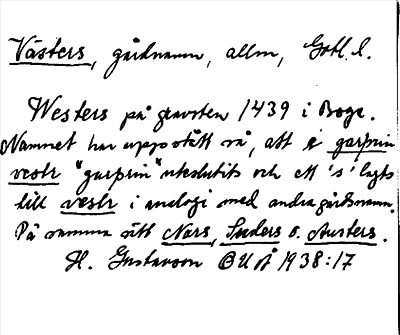 Västers, gårdnamn, allm, Gotl. l.
Westers på gravsten 1439 i Boge.
Namnet har uppstått så, att i garþrin
vestr "garþrin" uteslutits och ett 's' lagts
till vestr i analogi med andra gårdsnamn.
På samma sätt Nors, Suders o. Austers.
H. Gustavson BUÅ 1938:17